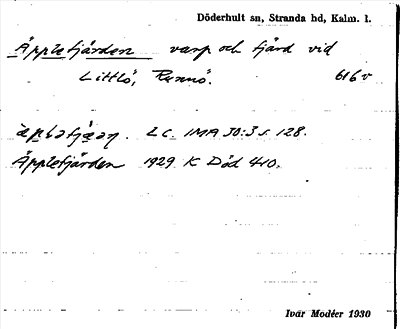 Döderhult sn, Stranda hd, Kalm. l.
Äpplefjärden varp och fjärd vid
Littlö, Runnö. 616 v
LC. IMA 30:3 s. 128.
Äpplefjärden 1929 K Död 410.
Ivar Modéer 1930